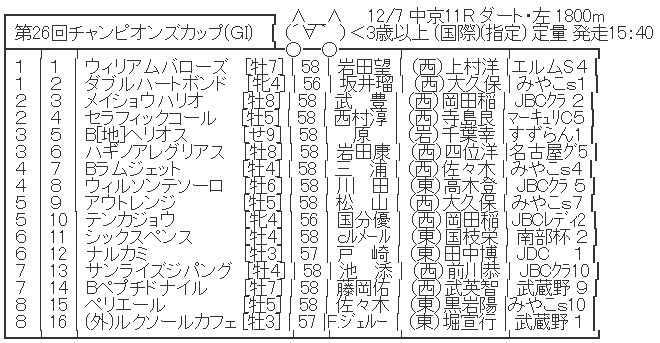 12/7 中京11R ダート・左 1800m
第26回チャンピオンズカップ(GI) (´∀`) <3歳以上 (国際)(指定) 定量 発走15:40
1 1 ウィリアムバローズ [牡7] 58 岩田望 (西)上村洋 エルムS4
1 2 ダブルハートボンド [牝4] 56 坂井瑠 (西)大久保 みやこs1
2 3 メイショウハリオ [牡8] 58 武 豊 (西)岡田稲 JBCクラ2
2 4 セラフィックコール [牡5] 58 西村淳 (西)寺島良 マーキュリC5
3 5 B[地]ヘリオス せ9] 58 原 (岩)千葉幸 すずらん1
3 6 ハギノアレグリアス [牡8] 58 岩田康 (西)四位洋 名古屋グ5
4 7 Bラムジェット [牡4] 58 三 浦 (西)佐々木 みやこs4
4 8 ウィルソンテソーロ [牡6] 58 川 田 (東)高木登 JBCクラ5
5 9 アウトレンジ [牡5] 58 松 山 (西)大久保 みやこs7
5 10 テンカジョウ [牝4] 56 国分優 (西)岡田稲 JBCレディ2
6 11 シックスペンス [牡4] 58 cルメール (東)国枝栄 南部杯2
6 12 ナルカミ [牡3] 57 戸 崎 (東)田中博 JDC 1
7 13 サンライズジパング [牡4] 58 池 添 (西)前川恭 JBCクラ10
7 14 Bペプチドナイル [牡7] 58 藤岡佑 (西)武英智 武蔵野9
8 15 ペリエール [牡5] 58 佐々木 (東)黒岩陽 みやこs10
8 16 (外)ルクソールカフェ [牡3] 57 F.ジェルー (東)堀宣行 武蔵野1